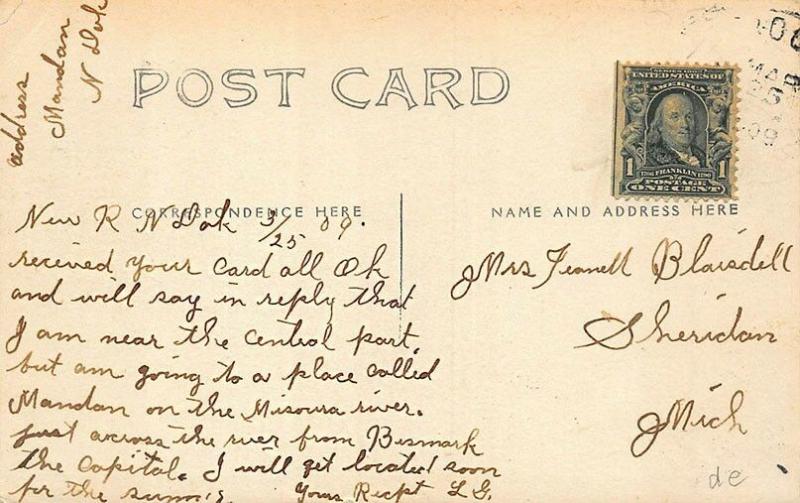 address
Mandan
N Dak
POST CARD
SERIES 1902
UNITED STATES OF
AMERICA
1
1
1706 FRANKLIN 1790
POSTAGE
ONE CENT
MAR
25
09
CORRESPONDENCE HERE
NAME AND ADDRESS HERE
New R N Dak 3/25 09.
recived your card all Ok
and will say in reply that
I am near the central part.
but am going to a place called
Mandan on the Misoura river.
just across the river from Bismark
the Capital. I will get located soon
for the
Yours Recpt L G.
Mrs Jeanell Blaisdell
Sheridan
Mich
de